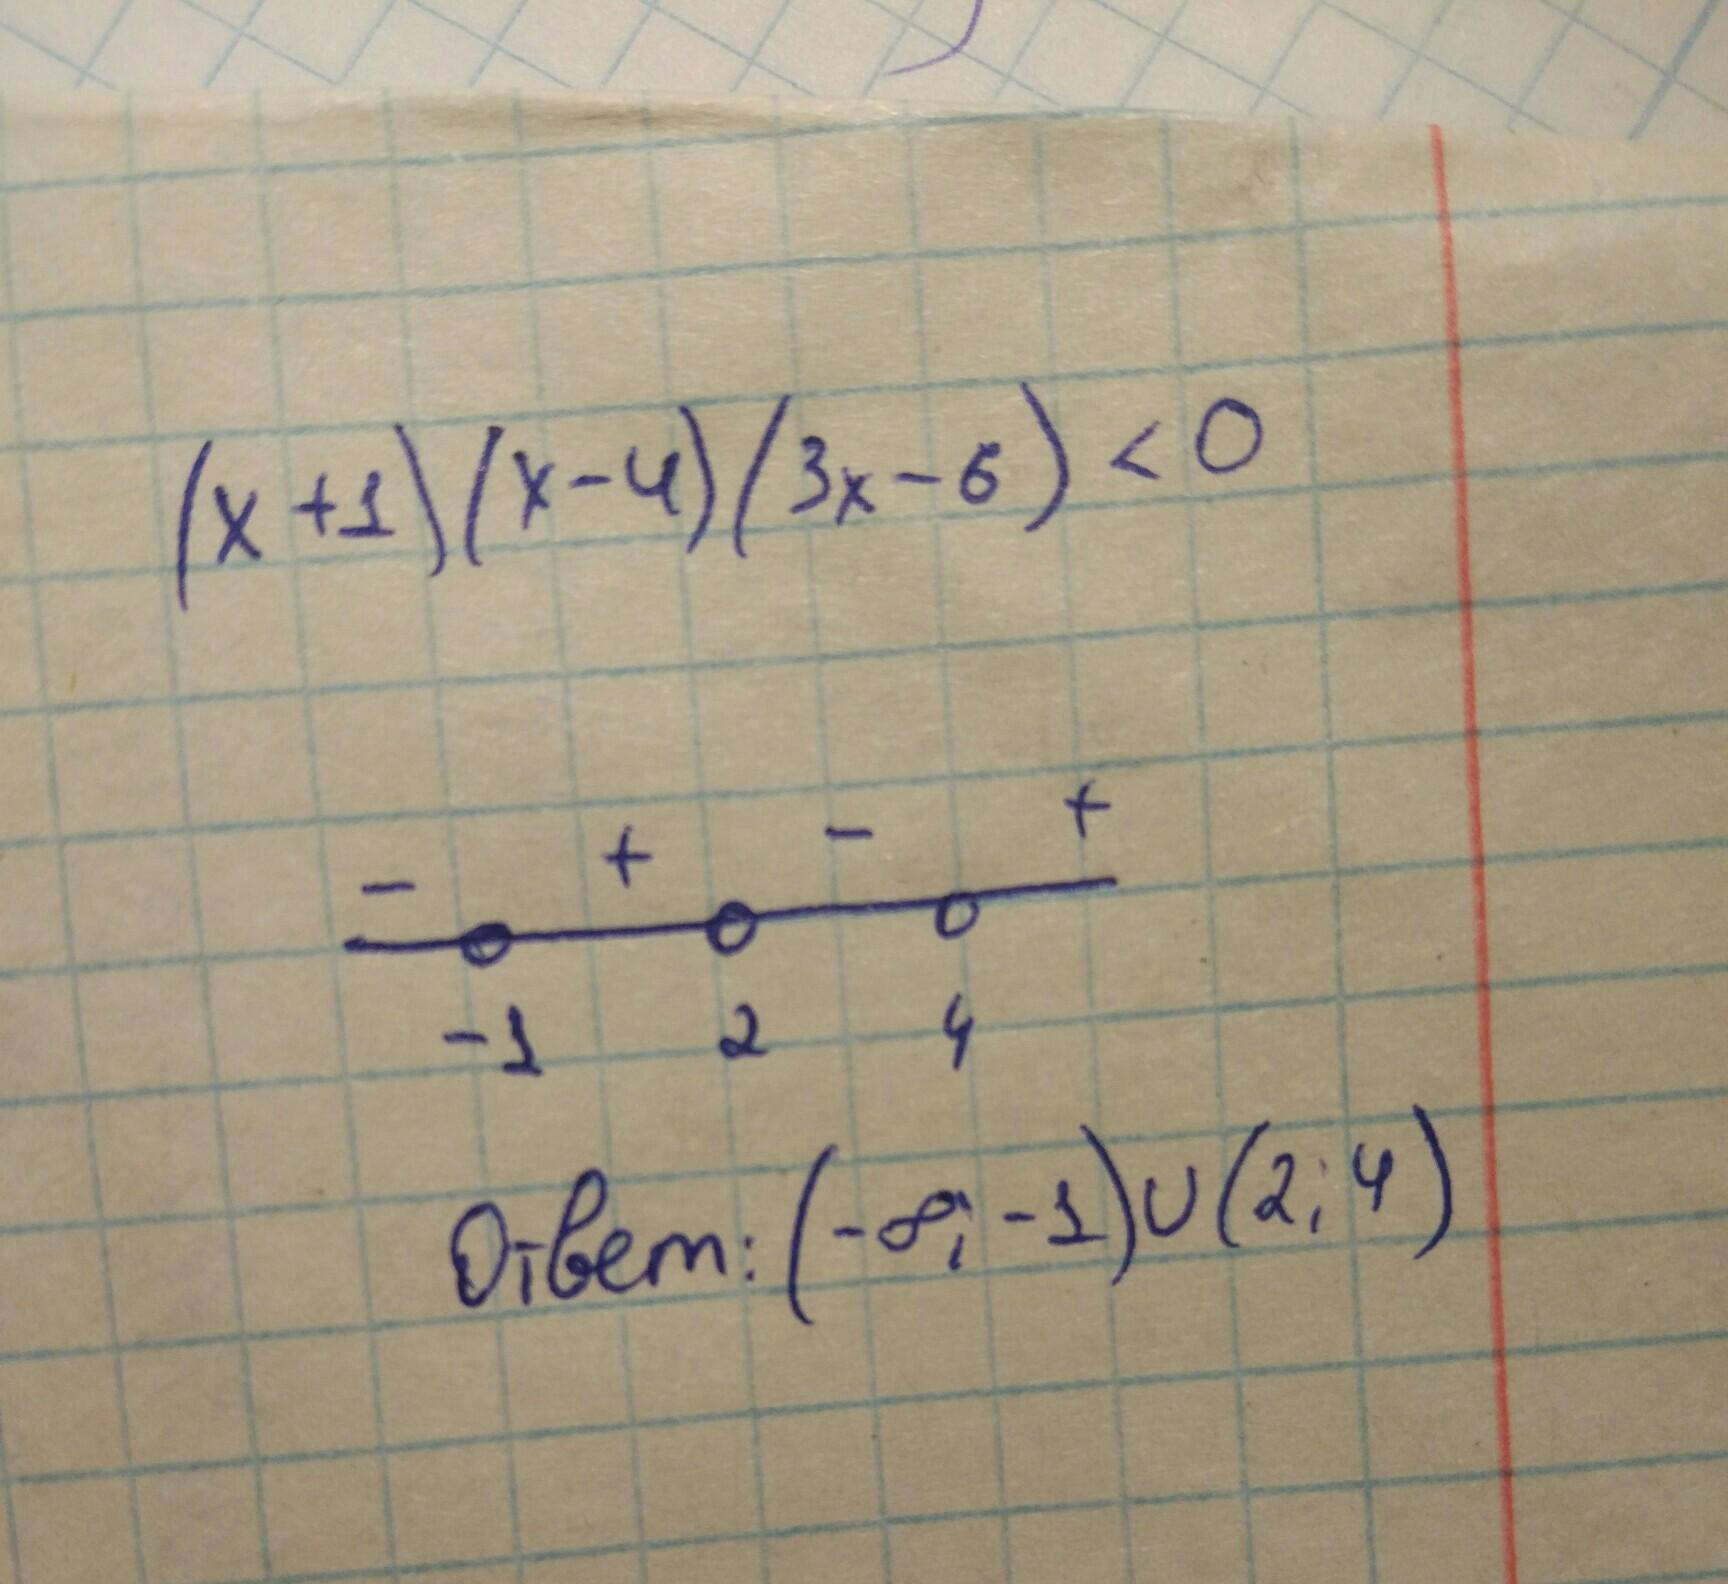 (x+1)(x-4)(3x-6)<0
- + - +
-1 2 4
Ответ: (-∞; -1)∪(2; 4)